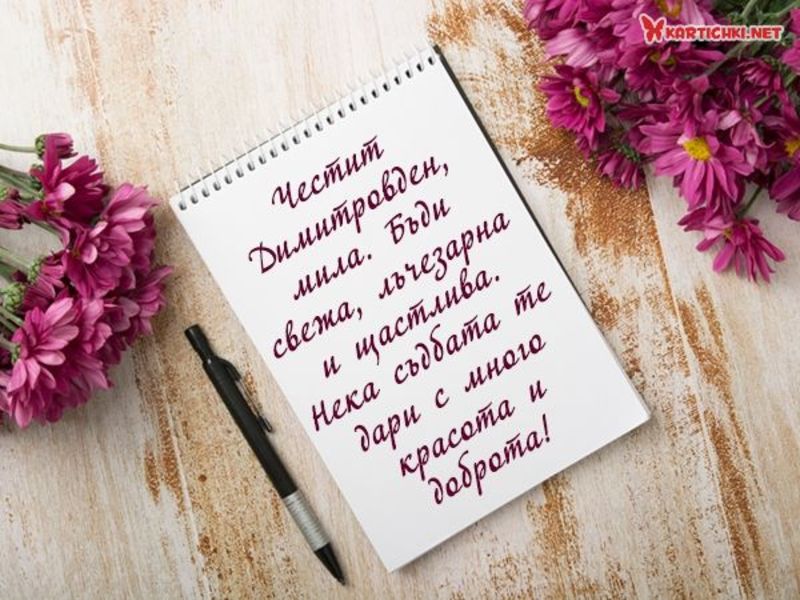 KARTICHKI.NET
Честит
Димитровден,
мила. Бъди
свежа, лъчезарна
и щастлива.
Нека съдбата те
дари с много
красота и
доброта!